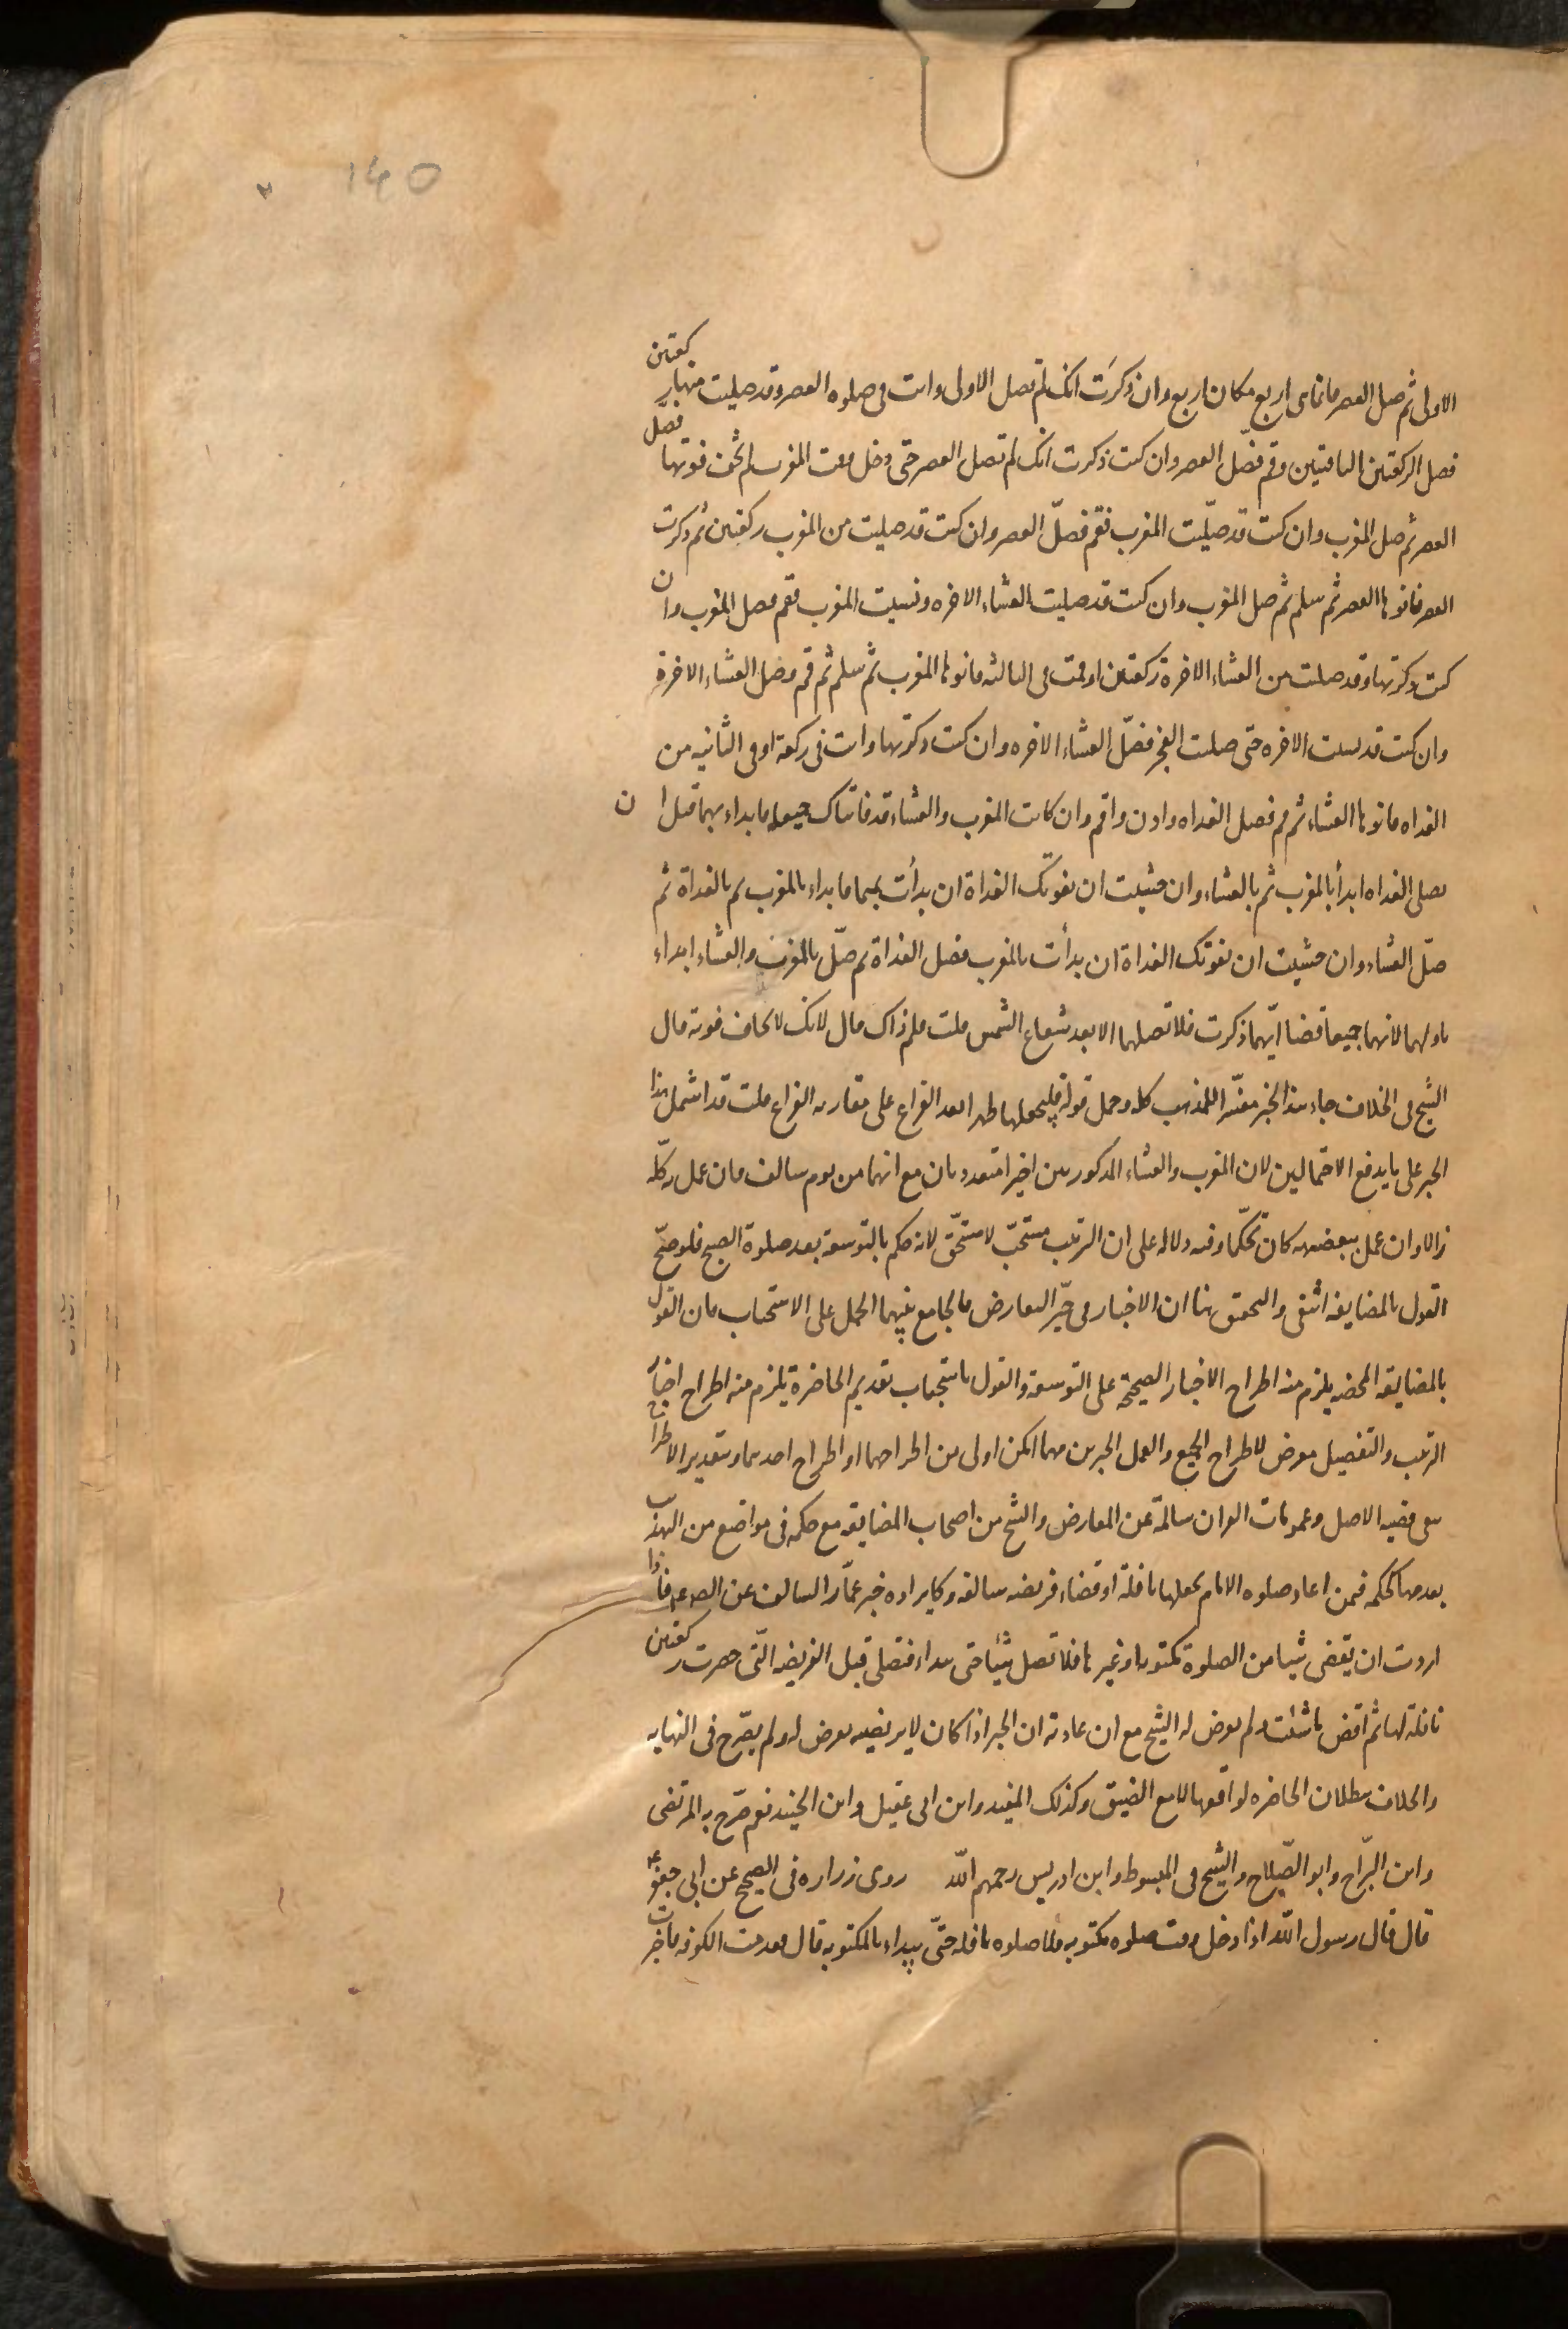 140
الاولى ثم صل العصر فانما هى اربع مكان اربع وان ذكرت انك لم تصل الاولى وانت فى صلوه العصر وقد صليت منها ركعتين
فصل الركعتين الباقتيين وقم فصّل العصر وان كنت ذكرت انك لم تصل العصر حتى دخل وقت المغرب لم تخف فوتها فصل
العصر ثم صل المغرب وان كنت قد صلّيت المغرب فقم فصلّ العصر وان كنت قد صليت من المغرب ركعتين ثم ذكرت
العصر فانوها العصر ثم سلم ثم صل المغرب وان كنت قد صليت العشاء الاخره ونسيت المغرب فقم فصل المغرب وان
كنت ذكرتها وقد صليت من العشاء الاخرة ركعتين او قمت فى الثالثه فانوها المغرب ثم سلم ثم قم وصل العشاء الاخرة
وان كنت قد نسيت الاخره حتى صليت الفجر فصلّ العشاء الاخره وان كنت ذكرتها وانت فى ركعة او فى الثانيه من
الغداه فانوها العشاء ثم قم فصل الغداه واذن واقم وان كانت المغرب والعشاء قد فاتتاك جميعا فابداء بهما قبل ان
تصلى الغداه ابدأ بالمغرب ثم بالعشاء وان خشيت ان تفوتك الغداة ان بدأت بهما فابداء بالمغرب ثم بالغداة ثم
صلّ العشاء وان خشيت ان تفوتك الغداة ان بدأت بالمغرب فصل الغداة ثم صلّ بالمغرب والعشاء ابداء
باولهما لانهما جميعا قضا ايّهما ذكرت فلا تصلهما الا بعد شعاع الشمس قلت فلم ذاك قال لانك لا تخاف فوته قال
الشيخ فى الخلاف جاء هذا الخبر مفسّرا للمذهب كله وحمل قوله فليجعلها ظهرا بعد الفراغ على مقاربه الفراغ قلت قد اشمل هذا
الخبر على ما يدفع الاحتمالين لان المغرب والعشاء المذكورين اخيرا متعددتان مع انهما من يوم سالف فان عمل بركلّه
زالا وان عمل ببعضه كان تحكّما وفيه دلاله على ان الترتيب مستحبّ لا مستحّق لانه حكم بالتوسعة بعد صلوة الصبح فلو صحّ
القول بالمضايقه انتفى والتحقق هنا ان الاخبار فى حيّز التعارض فالجامع بينهما الحمل على الاستحباب فان القول
بالمضايقه المحضه يلزم منه اطراح الاخبار الصحيحة على التوسعة والقول باستحباب تقديم الحاضرة يلزم منه اطراح اخبار
الترتيب والتفصيل معرض لاطراح الجميع والعمل الخبرين مهما امكن اولى من اطراحهما او اطراح احدهما وبتقدير الاطراح
بقى قضيه الاصل وعمومات القران سالمة عن المعارض والشيخ من اصحاب المضايقه مع حكمه فى مواضع من التهذيب
بعدمها كحكمه فيمن اعاد صلوه الامام يجعلها نافلة او قضاء فريضه سالفه وكايراده خبر عمّار السالف عن الص عم فاذا
اردت ان تقضى شيا من الصلوة مكتوبه او غيرها فلا تصل شيئا حتى تبداء فتصلى قبل الفريضه الّتى حضرت ركعتين
نافلة لها ثم اقض ما شئت ولم يعرض له الشيخ مع ان عادته ان الخبر اذا كان لا يرتضيه يعرض له ولم يصّرح فى النهايه
والخلاف ببطلان الحاضره لو اوقعها لا مع الضيق وكذلك المفيد وابن ابى عقيل وابن الجنيد نعم صّرح به المرتضى
وابن البّراج وابو الصّلاح والشيخ فى المبسوط وابن ادريس رحمهم الله روى زراره فى الصحيح عن ابى جعفر ع
قال قال رسول الله اذا دخل وقت صلوه مكتوبه فلا صلوه نافله حتّى يبداء بالمكتوبه قال فقدمت الكوفه فاخبرت